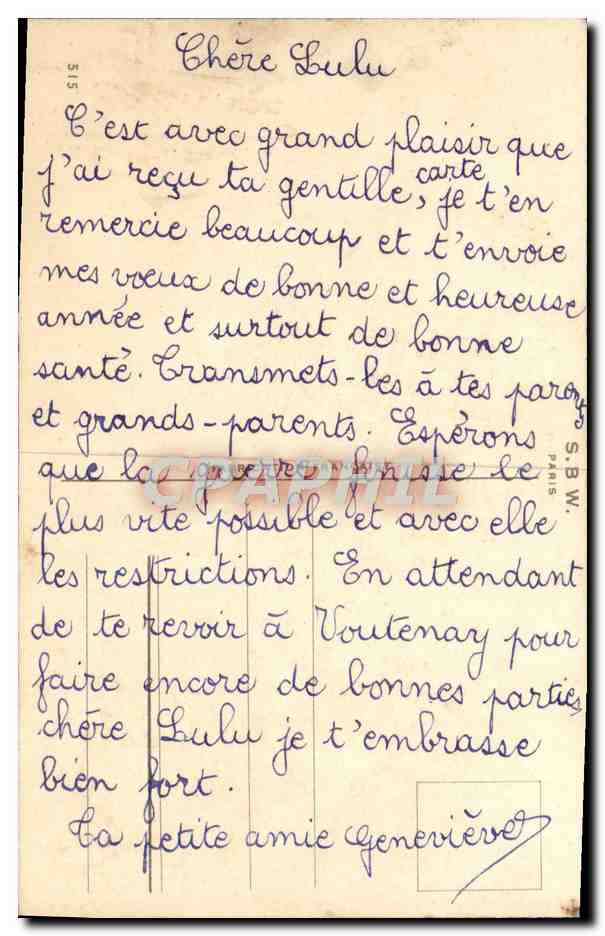 515
Chère Lulu
C'est avec grand plaisir que
j'ai reçu ta gentille, carte je t'en
remercie beaucoup et t'envoie
mes vœux de bonne et heureuse
année et surtout de bonne
santé. Transmets-les à tes parents
et grands-parents. Espérons
que la guerre finisse le
plus vite possible et avec elle
les restrictions. En attendant
de te revoir à Voutenay pour
faire encore de bonnes parties
chère Lulu je t'embrasse
bien fort.
Ta petite amie Geneviève
S.B.W.
PARIS
CPAPHIL